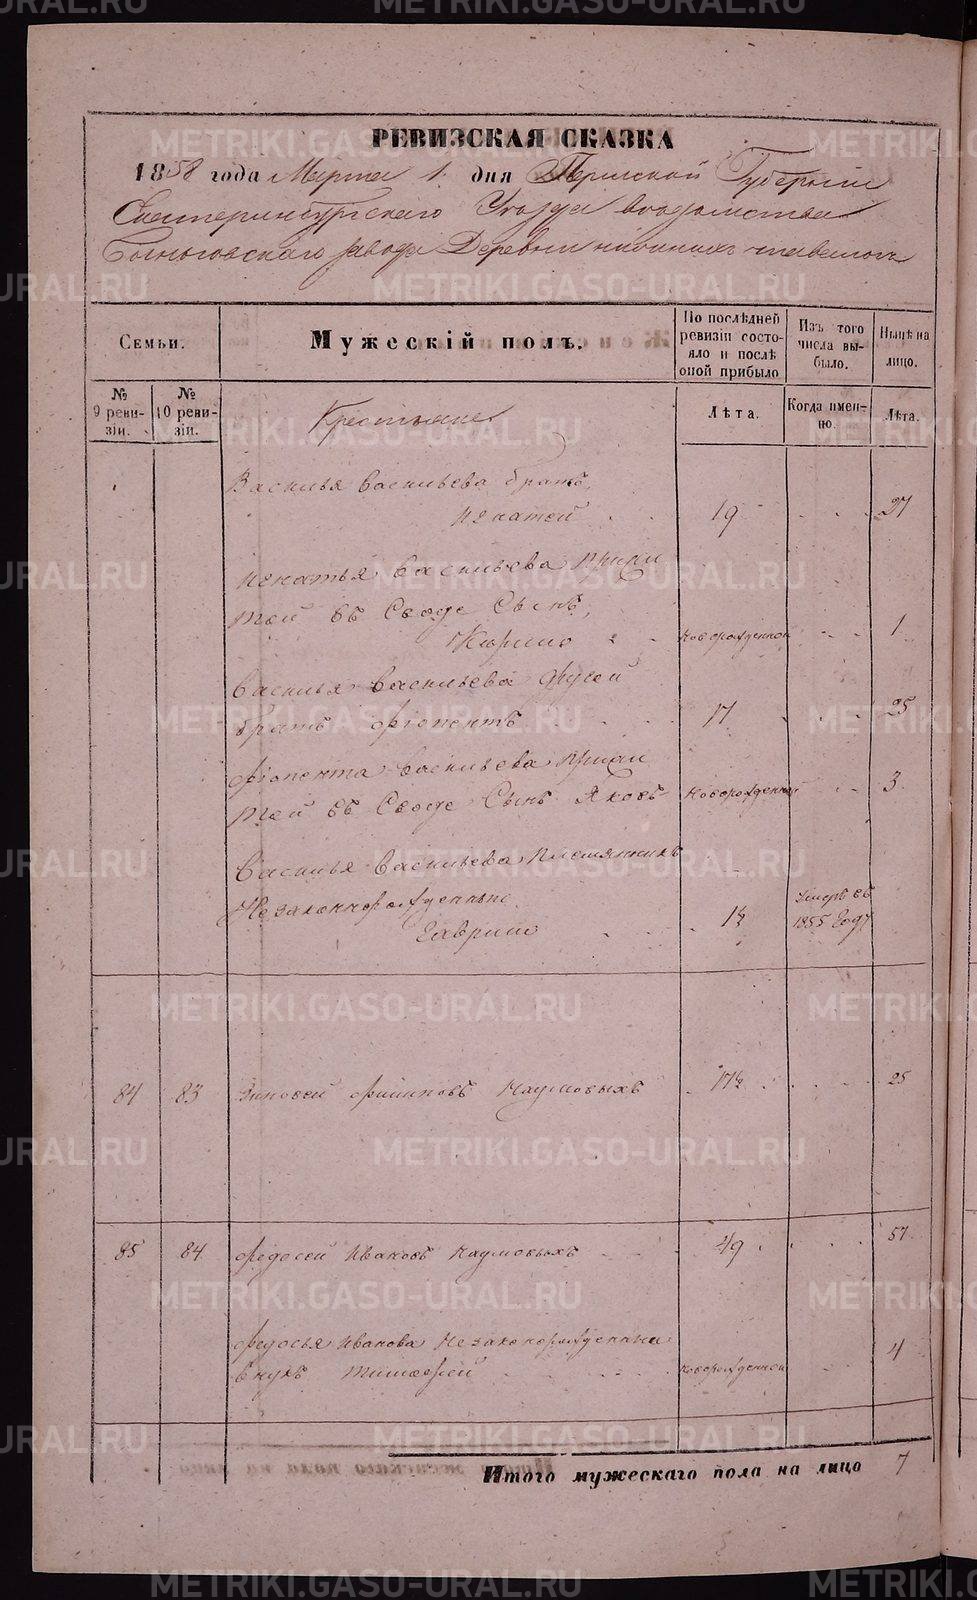 METRIKI.GASO-URAL.RU
РЕВИЗСКАЯ СКАЗКА
1858 года Марта 1 дня Пермской Губернии
Екатеринбургского Уезда ведомства
завода Деревни
Семьи.
Мужескій полъ.
По послѣдней ревизіи состояло и послѣ оной прибыло
Изъ того числа выбыло.
Нынѣ на лицо.
№ 9 ревизіи.
№ 10 ревизіи.
Крестьяне
Лѣта.
Когда именно.
Лѣта.
Василья Васильева братъ,
Игнатей 19 27
Игнатья Васильева прижи
той съ Сын,
Кирило новорожденной 1
Василья Васильева другой
братъ 17 25
Васильева прижи
той съ Сынъ Яковъ новорожденной 3
Василья Васильева племянникъ
Незаконнорожденные
Гаврило 1½ Умеръ въ 1855 году
84 83 Зиновей Филиповъ Наумовыхъ 17½ 25
85 84 Федосей Ивановъ Наумовыхъ 49 57
Федосья Иванова Незаконорожденны
внукъ Тимофей новорожденной 4
Итого мужескаго пола на лицо 7